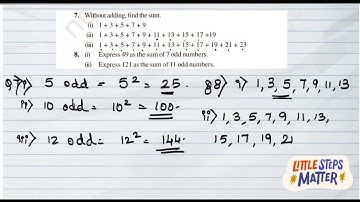 7. Without adding, find the sum.
(i) 1 + 3 + 5 + 7 + 9
(ii) 1 + 3 + 5 + 7 + 9 + 11 + 13 + 15 + 17 +19
(iii) 1 + 3 + 5 + 7 + 9 + 11 + 13 + 15 + 17 + 19 + 21 + 23
8. (i) Express 49 as the sum of 7 odd numbers.
(ii) Express 121 as the sum of 11 odd numbers.
Q 7) i) 5 odd = 5² = 25.
ii) 10 odd = 10² = 100.
iii) 12 odd = 12² = 144.
Q8) i) 1, 3, 5, 7, 9, 11, 13
ii) 1, 3, 5, 7, 9, 11, 13,
15, 17, 19, 21
LITTLE STEPS
MATTER